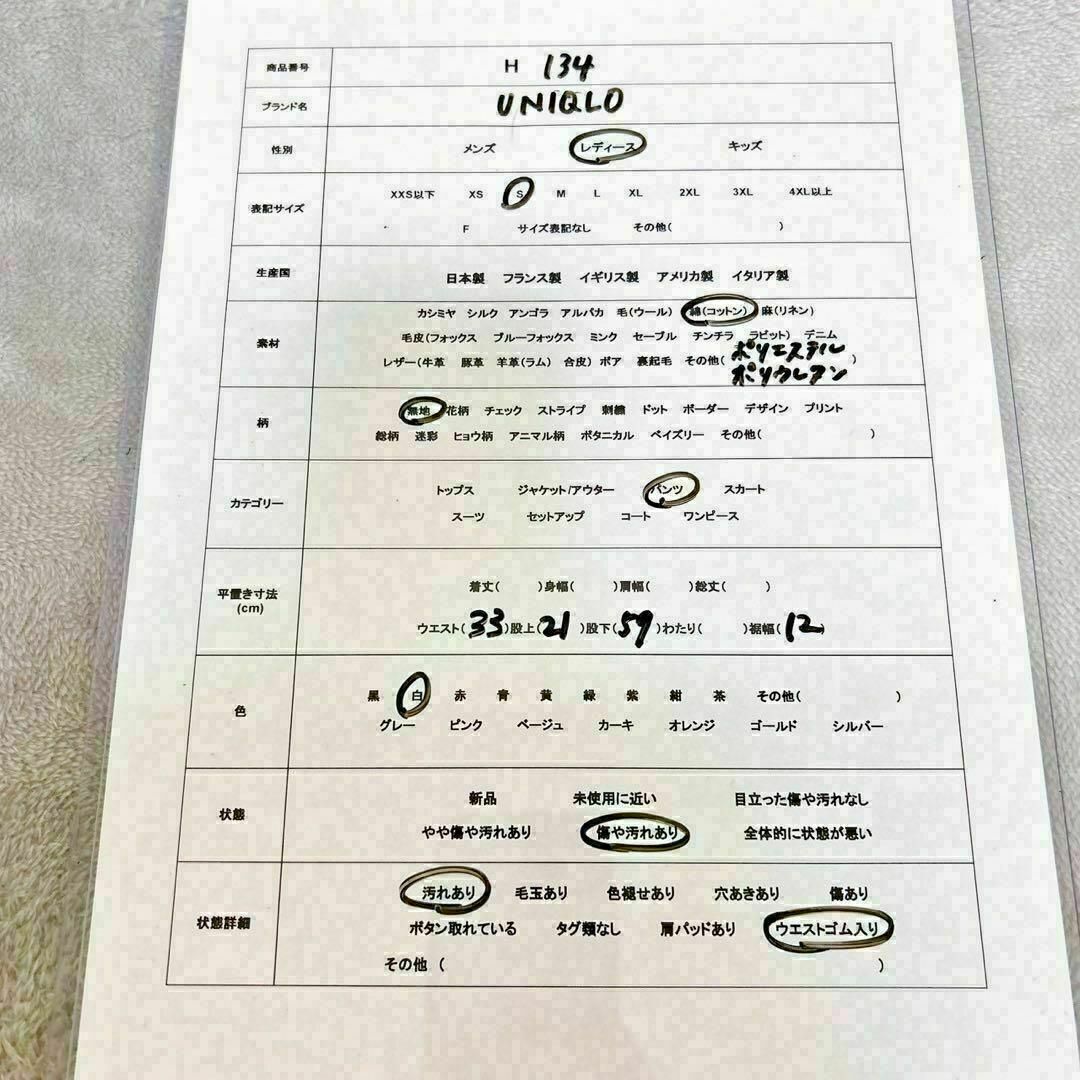 商品番号 H 134
ブランド名 UNIQLO
性別 メンズ レディース キッズ
表記サイズ XXS以下 XS S M L XL 2XL 3XL 4XL以上
F サイズ表記なし その他( )
生産国 日本製 フランス製 イギリス製 アメリカ製 イタリア製
素材 カシミヤ シルク アンゴラ アルパカ 毛(ウール) 綿(コットン) 麻(リネン)
毛皮(フォックス ブルーフォックス ミンク セーブル チンチラ ラビット) デニム
レザー(牛革 豚革 羊革(ラム) 合皮) ボア 裏起毛 その他( ポリエステル )
ポリウレタン
柄 無地 花柄 チェック ストライプ 刺繍 ドット ボーダー デザイン プリント
総柄 迷彩 ヒョウ柄 アニマル柄 ボタニカル ペイズリー その他( )
カテゴリー トップス ジャケット/アウター パンツ スカート
スーツ セットアップ コート ワンピース
平置き寸法 着丈( )身幅( )肩幅( )総丈( )
(cm) ウエスト(33)股上(21 )股下(59)わたり( )裾幅(12)
色 黒 白 赤 青 黄 緑 紫 紺 茶 その他( )
グレー ピンク ベージュ カーキ オレンジ ゴールド シルバー
状態 新品 未使用に近い 目立った傷や汚れなし
やや傷や汚れあり 傷や汚れあり 全体的に状態が悪い
状態詳細 汚れあり 毛玉あり 色褪せあり 穴あきあり 傷あり
ボタン取れている タグ類なし 肩パッドあり ウエストゴム入り
その他 ( )